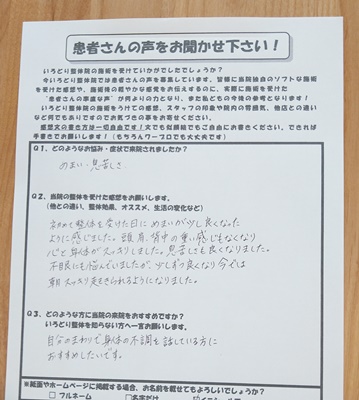 患者さんの声をお聞かせ下さい!
いろどり整体院の施術を受けていかがでしたでしょうか?
今いろどり整体院では患者さんの声を募集しています。皆様に当院独自のソフトな施術
を受けた感想や、施術後の軽やかな感覚をお伝えするのに、実際に施術を受けた
"患者さんの率直な声"が何よりの力となり、また私どもの今後の参考となります!
いろどり整体院の施術をうけての感想、スタッフの印象や院内の雰囲気、他店との違い
など何でもありますのでお気づきの事をお寄せください。
感想文の書き方は一切自由です!文でも似顔絵でもご自由にお書きください。できれば
手書きでお願いします!(もちろんワープロでも大丈夫です)
Q1. どのようなお悩み・症状で来院されましたか?
めまい・息苦しさ
Q2. 当院の整体を受けた感想をお願いします。
(他との違い、整体効果、オススメ、生活の変化など)
初めて整体を受けた日にめまいが少し良くなった
ように感じました。頭、肩、背中の重い感じもなくなり
心と身体がスッキリしました。息苦しさも良くなりました。
不眠にも悩んでいましたが、少しずつ良くなり今では
朝スッキリ起きられるようになりました。
Q3. どのような方に当院の来院をおすすめですか?
いろどり整体を知らない方へ一言お願いします。
自分のまわりで身体の不調を話している方に
おすすめしたいです。
※紙面やホームページに掲載する場合、お名前を載せてもよろしいでしょうか?
□フルネーム □名字だけ